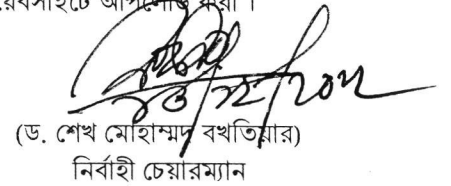 ওয়েবসাইটে আপলোড করা।
(ড. শেখ মোহাম্মদ বখতিয়ার)
নির্বাহী চেয়ারম্যান